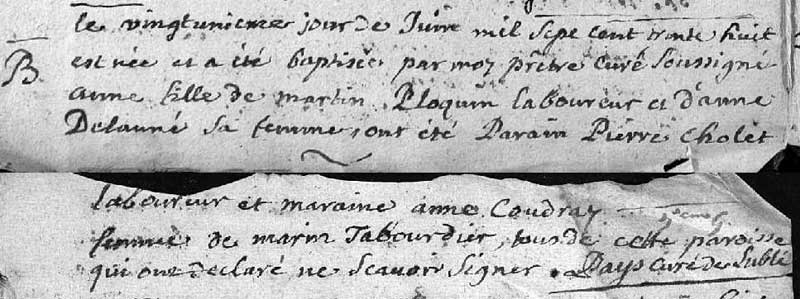 le vingtunieme jour de Juin mil sept cent trente huit
B
est née et a été baptisée par moy prêtre curé soussigné
anne fille de martin Ploquin laboureur et d'anne
Delauné sa femme, ont été Parain Pierre Cholet
laboureur et maraine anne Coudray
femme de marin Tabourdier, tous de cette paroisse
qui ont declaré ne scavoir signer. Pays curé de Sublé